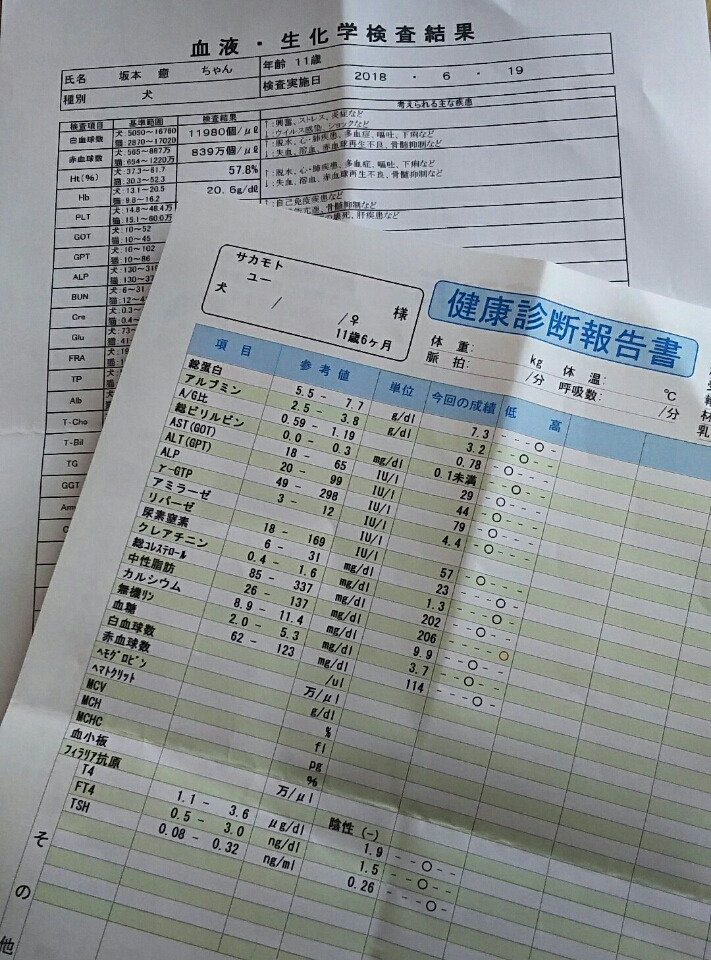 血液・生化学検査結果
氏名 坂本 癒 ちゃん 年齢 11歳
種別 犬 検査実施日 2018 ・ 6 ・ 19
考えられる主な疾患
検査項目 基準範囲 検査結果
白血球数 犬:5050～16760 猫:2870～17020 11980個/μℓ ↑:興奮、ストレス、炎症など ↓:ウイルス感染、ショックなど
赤血球数 犬:565～887万 猫:654～1220万 839万個/μℓ ↑:脱水、心・肺疾患、多血症、嘔吐、下痢など ↓:失血、溶血、赤血球再生不良、骨髄抑制など
Ht(%) 犬:37.3～61.7 猫:30.3～52.3 57.8%
Hb 犬:13.1～20.5 猫:9.8～16.2 20.6g/dℓ ↑:脱水、心・肺疾患、多血症、嘔吐、下痢など ↓:失血、溶血、赤血球再生不良、骨髄抑制など
PLT 犬:14.8～48.4万 猫:15.1～60.0万 ↑:自己免疫疾患など 骨髄抑制など
GOT 犬:10～52 猫:10～45 壊死、肝疾患など
GPT 犬:10～102 猫:10～86
ALP 犬:130～31 猫:130～37
BUN 犬:6～31 猫:12～4
Cre 犬:0.3～ 猫:0.4～
Glu 犬:73～ 猫:41
FRA
TP
Alb
T-Cho
T-Bil
TG
GGT
サカモト
ユー 様
犬 / /♀
11歳6ヶ月
健康診断報告書
体 重: kg 体 温: ℃
脈 拍: /分 呼吸数: /分
項 目 参 考 値 単位 今回の成績 低 高
総蛋白 5.5 - 7.7 g/dl 7.3 - - - ○ - -
アルブミン 2.5 - 3.8 g/dl 3.2
A/G比 0.59 - 1.19 0.78
総ビリルビン 0.0 - 0.3 mg/dl 0.1未満
AST(GOT) 18 - 65 IU/l 29
ALT(GPT) 20 - 99 IU/l 44
ALP 49 - 298 IU/l 79
γ-GTP 3 - 12 IU/l 4.4
アミラーゼ
リパーゼ IU/l
尿素窒素 18 - 169 mg/dl 57
クレアチニン 6 - 31 mg/dl 23
総コレステロール 0.4 - 1.6 mg/dl 1.3
中性脂肪 85 - 337 mg/dl 202
カルシウム 26 - 137 mg/dl 206
無機リン 8.9 - 11.4 mg/dl 9.9
血糖 2.0 - 5.3 mg/dl 3.7
白血球数 62 - 123 /ul 114
赤血球数 万/μl
ヘモグロビン g/dl
ヘマトクリット %
MCV fl
MCH pg
MCHC %
血小板 万/μl
フィラリア抗原 陰性 (-)
T4 1.1 - 3.6 μg/dl 1.9 - - ○ - -
FT4 0.5 - 3.0 ng/dl 1.5 - - ○ - - -
TSH 0.08 - 0.32 ng/ml 0.26 - - - ○ - -
その他